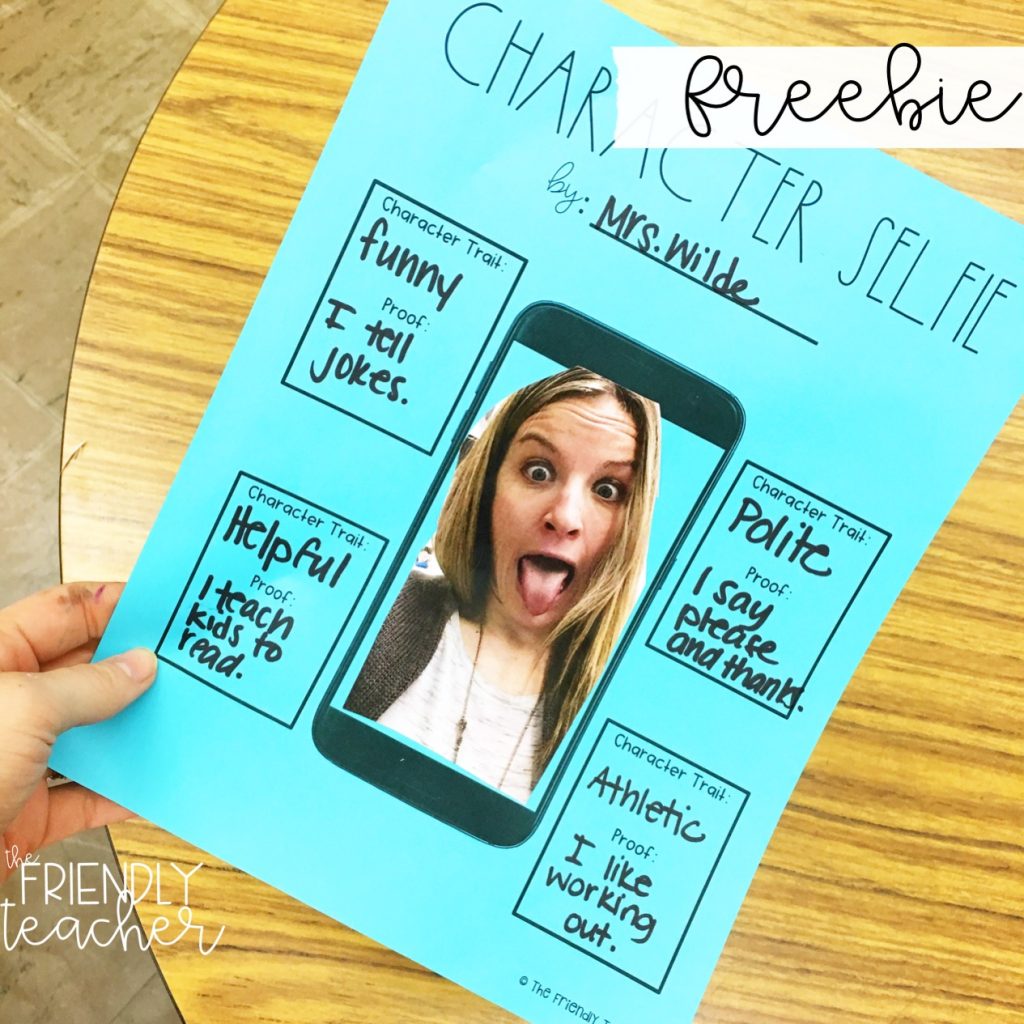 freebie
CHARACTER SELFIE
by: Mrs. Wilde
Character Trait:
funny
Proof:
I tell
Jokes.
Character Trait:
Helpful
Proof:
I teach
kids to
read.
Character Trait:
Polite
Proof:
I say
please
and thanks.
Character Trait:
Athletic
Proof:
I like
working
out.
the
FRIENDLY
teacher
© The Friendly T